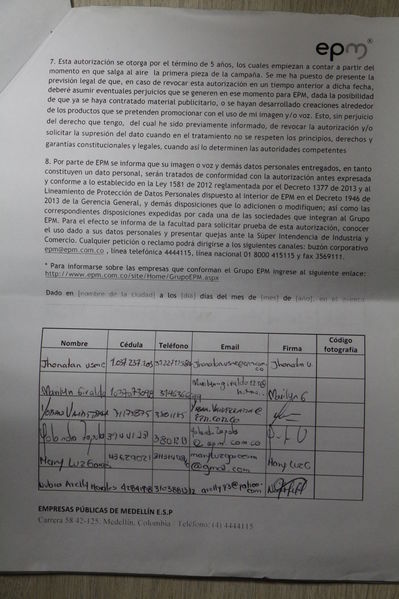 epm®
7. Esta autorización se otorga por el término de 5 años, los cuales empiezan a contar a partir del
momento en que salga al aire la primera pieza de la campaña. Se me ha puesto de presente la
previsión legal de que, en caso de revocar esta autorización en un tiempo anterior a dicha fecha,
deberé asumir eventuales perjuicios que se generen en ese momento para EPM, dada la posibilidad
de que ya se haya contratado material publicitario, o se hayan desarrollado creaciones alrededor
de los productos que se pretenden promocionar con el uso de mi imagen y/o voz. Esto, sin perjuicio
del derecho que tengo, del cual se he previamente informado, de revocar la autorización y/o
solicitar la supresión del dato cuando en el tratamiento no se respeten los principios, derechos y
garantías constitucionales y legales, cuando así lo determinen las autoridades competentes
8. Por parte de EPM se informa que su imagen o voz y demás datos personales entregados, en tanto
constituyen un dato personal, serán tratados de conformidad con la autorización antes expresada
y conforme a lo establecido en la Ley 1581 de 2012 reglamentada por el Decreto 1377 de 2013 y al
Lineamiento de Protección de Datos Personales dispuesto al interior de EPM en el Decreto 1946 de
2013 de la Gerencia General, y demás disposiciones que lo adicionen o modifiquen; así como las
correspondientes disposiciones expedidas por cada una de las sociedades que integran al Grupo
EPM. Para el efecto se informa de la facultad para solicitar prueba de esta autorización, conocer
el uso dado a sus datos personales y presentar quejas ante la Súper Intendencia de Industria y
Comercio. Cualquier petición o reclamo podrá dirigirse a los siguientes canales: buzón corporativo
epm@epm.com.co , línea telefónica 4444115, línea nacional 01 8000 415115 y fax 3569111.
* Para informarse sobre las empresas que conforman el Grupo EPM ingrese al siguiente enlace:
http://www.epm.com.co/site/Home/GrupoEPM.aspx
Dado en [nombre de la ciudad] a los [día] días del mes de [mes] de [año],
Nombre Cédula Teléfono Email Firma Código fotografía
Jhonatan Jhonatan U.
Marilyn Giraldo Marilyn G
Yolanda Zapata @epm.com.co
Mary Luz 43629021 @gmail.com Mary Luz G
Nubia Arelly
EMPRESAS PÚBLICAS DE MEDELLÍN E.S.P
Carrera 58 42-125. Medellín, Colombia / Teléfono: (4) 4444115